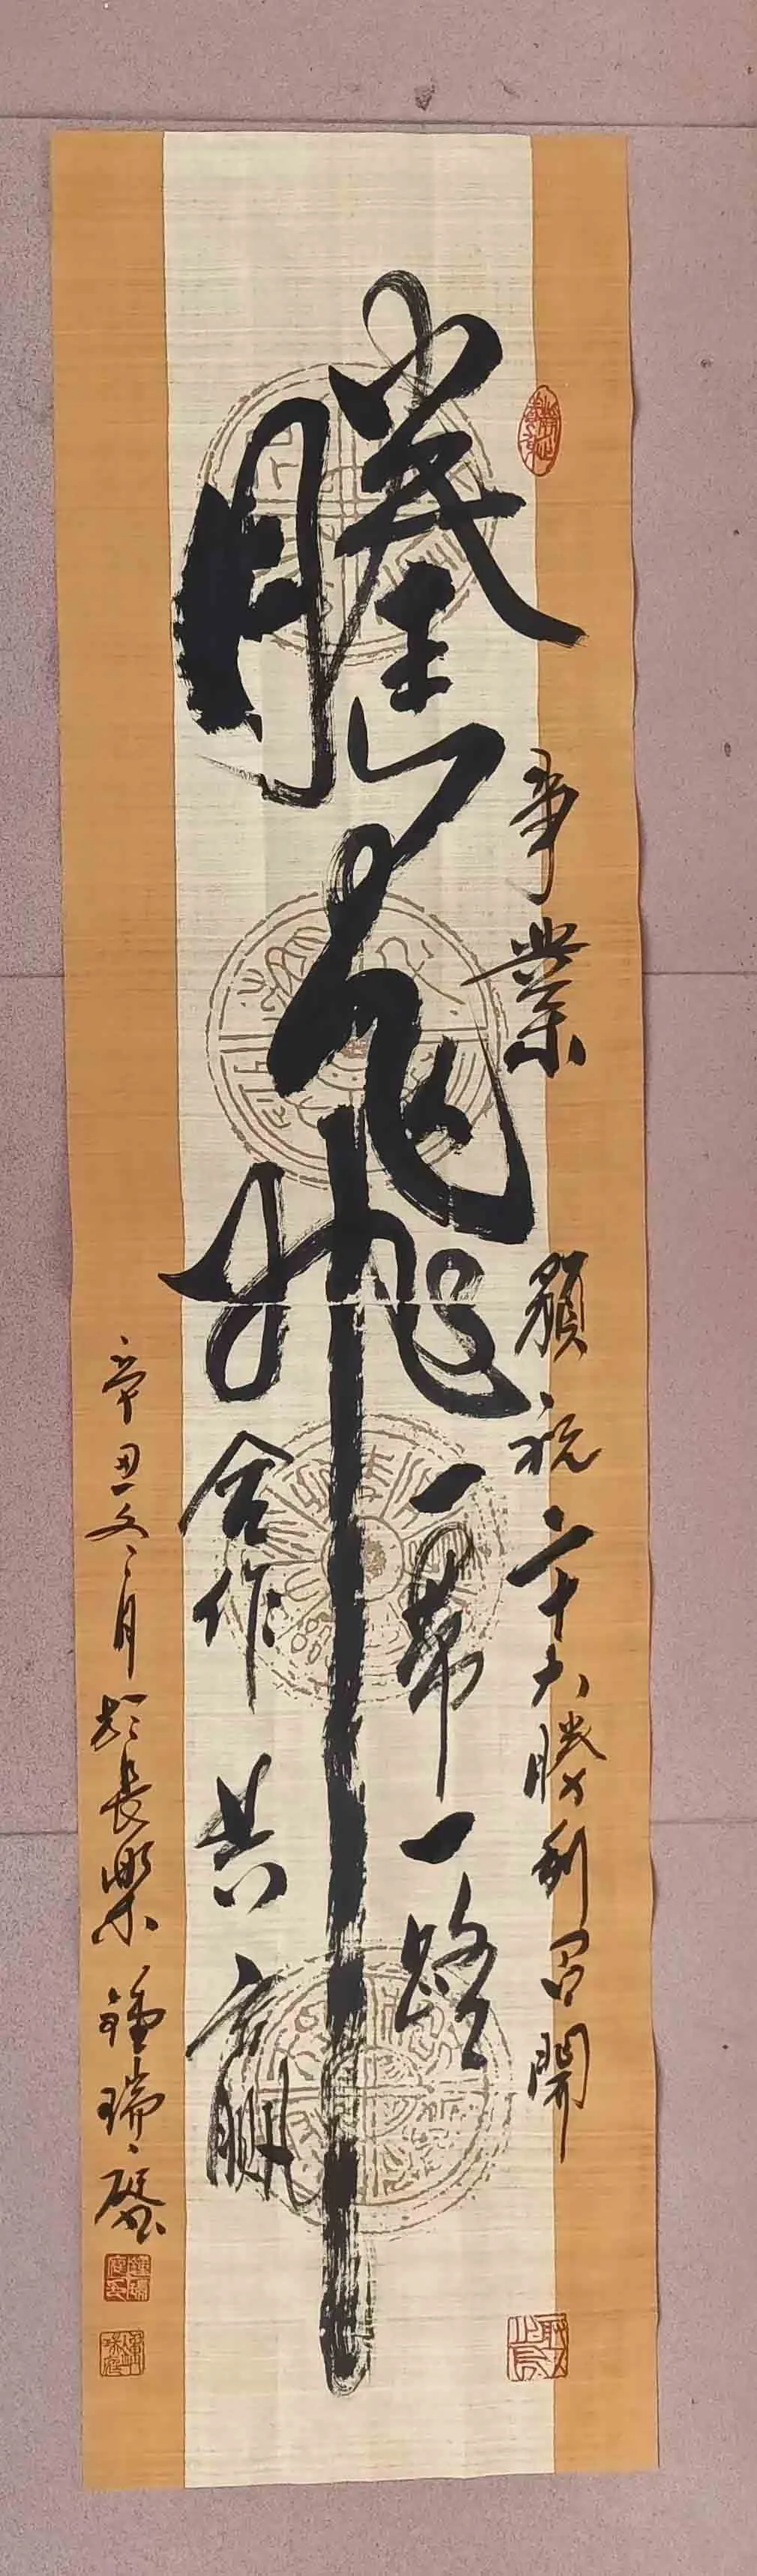 事業 預祝二十大勝利召開
騰飛
一帶一路
合作共贏
辛丑冬月於長樂 鍾瑞